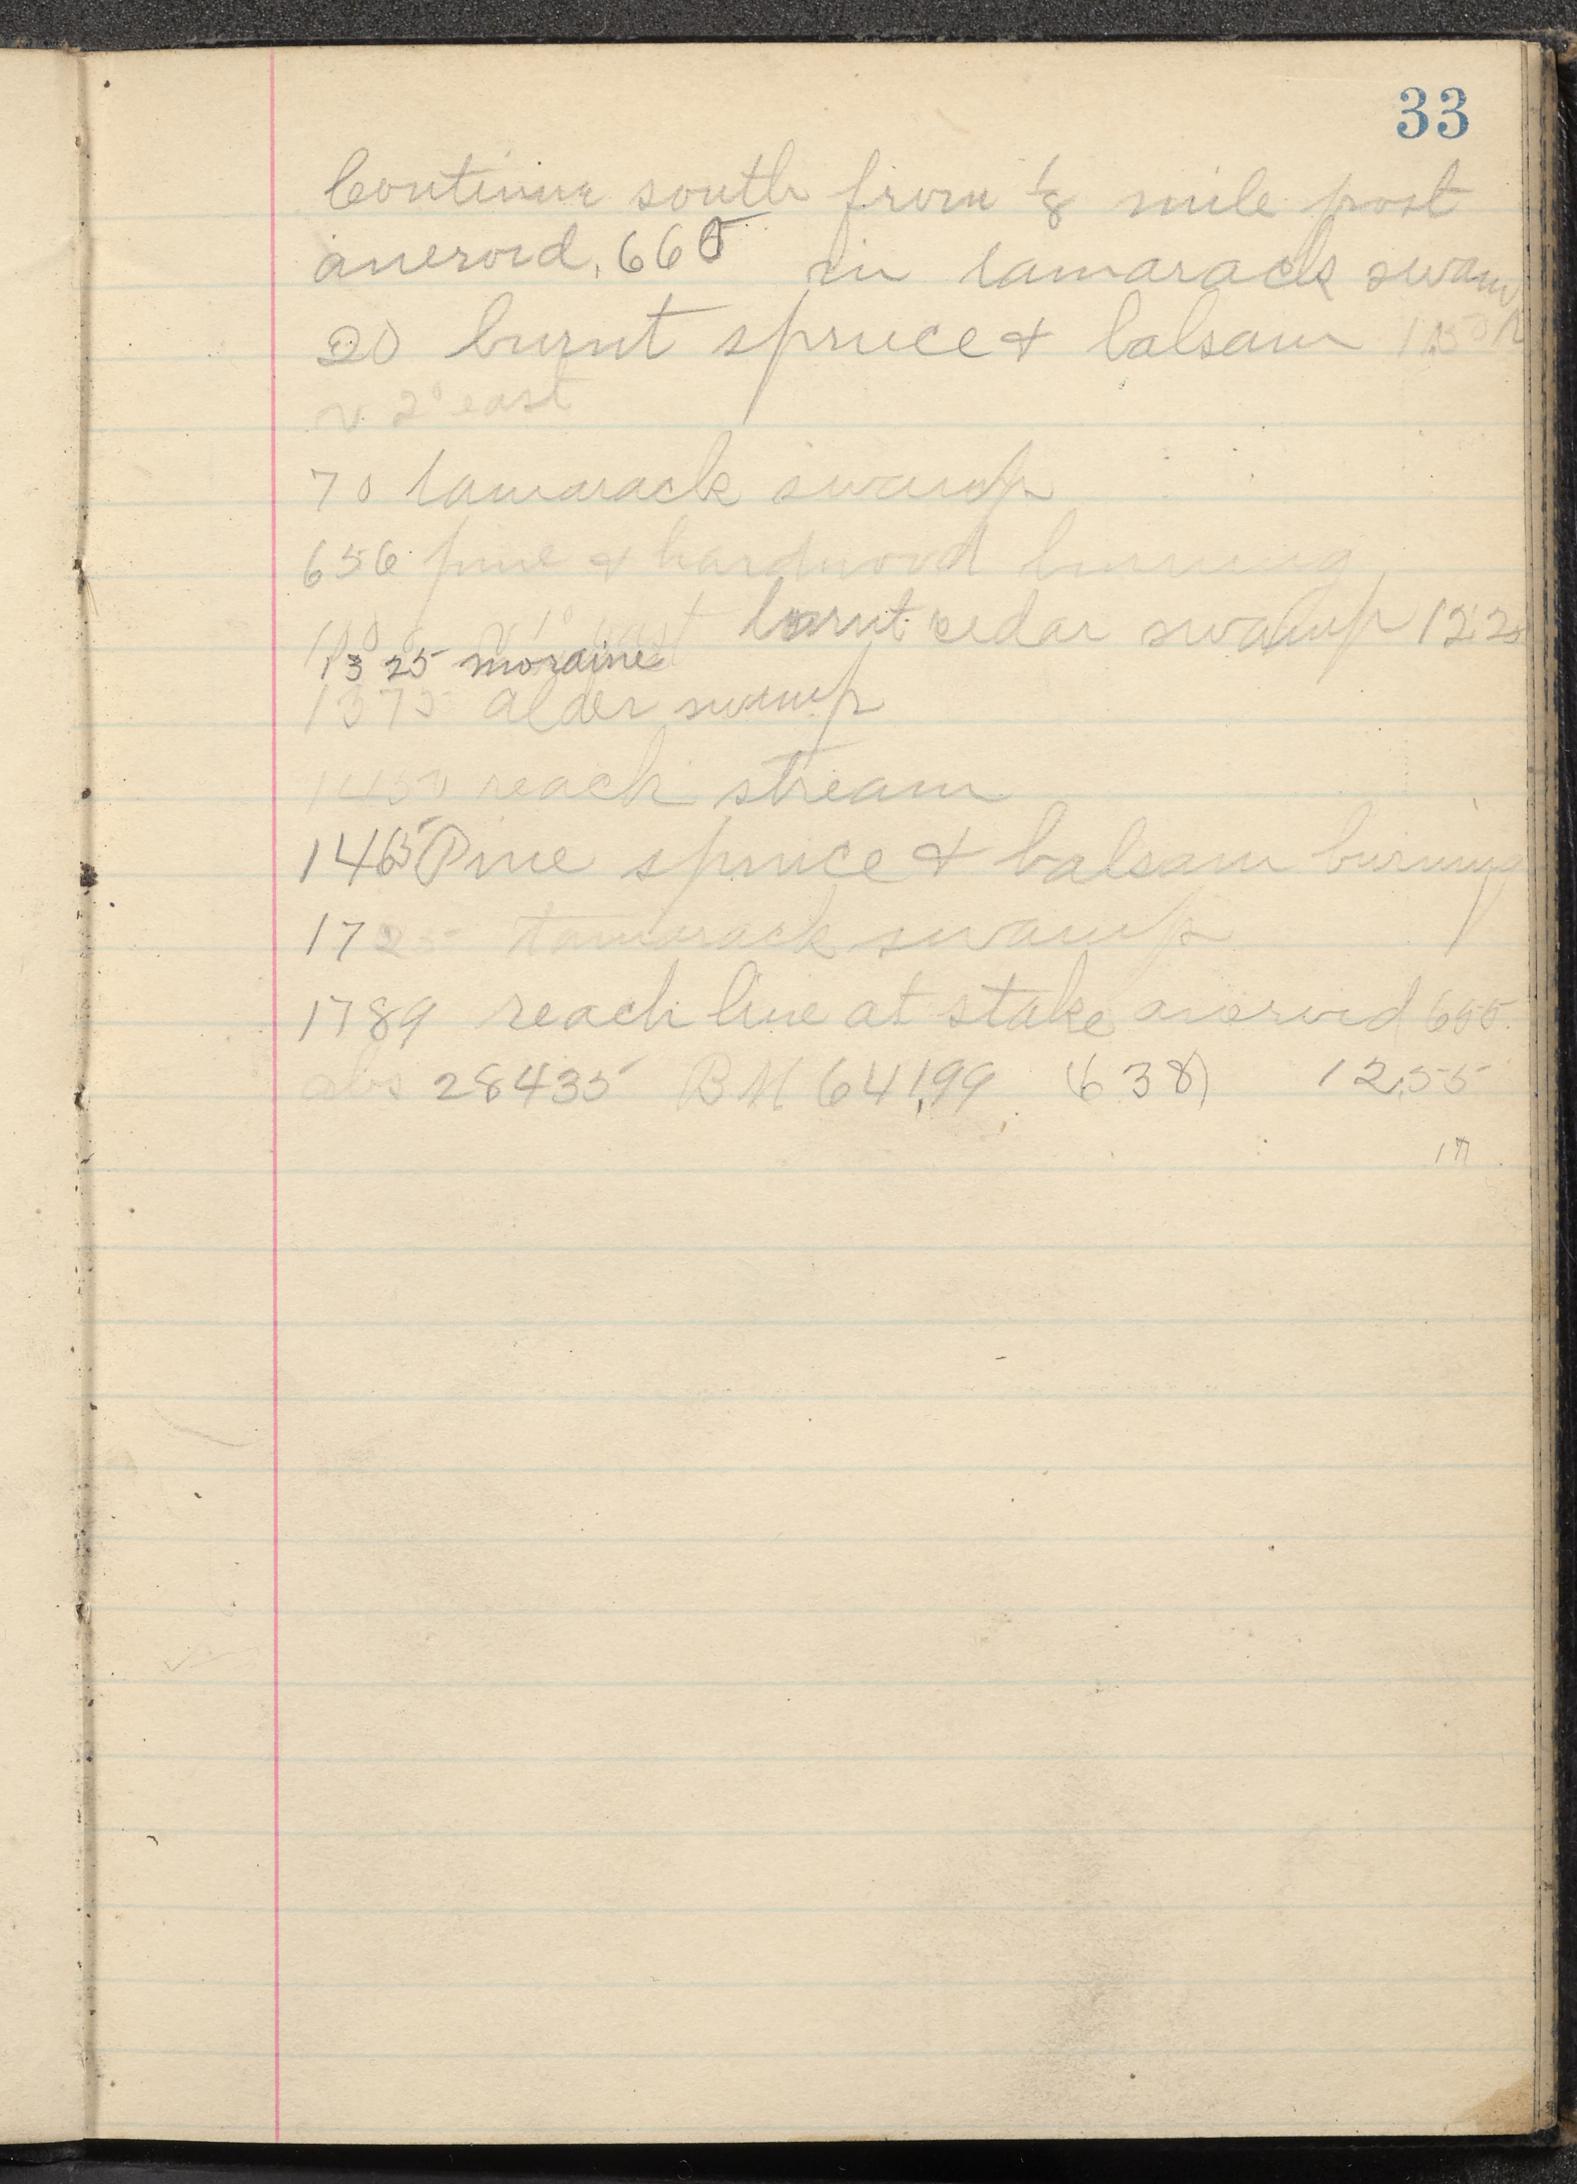 33
Continue south from 1/8 mile post
aneroid, 665 in tamarack swamp
20 burnt spruce & balsam
v 2° east
70 tamarack swamp
656 pine & hardwood burning
v 1° east burnt cedar swamp 1225
1325 moraine
1375 alder swamp
1450 reach stream
1465 Pine spruce & balsam burning
1725 tamarack swamp
1789 reach line at stake aneroid 655
abs 28435 BM 641.99 (638) 12.55